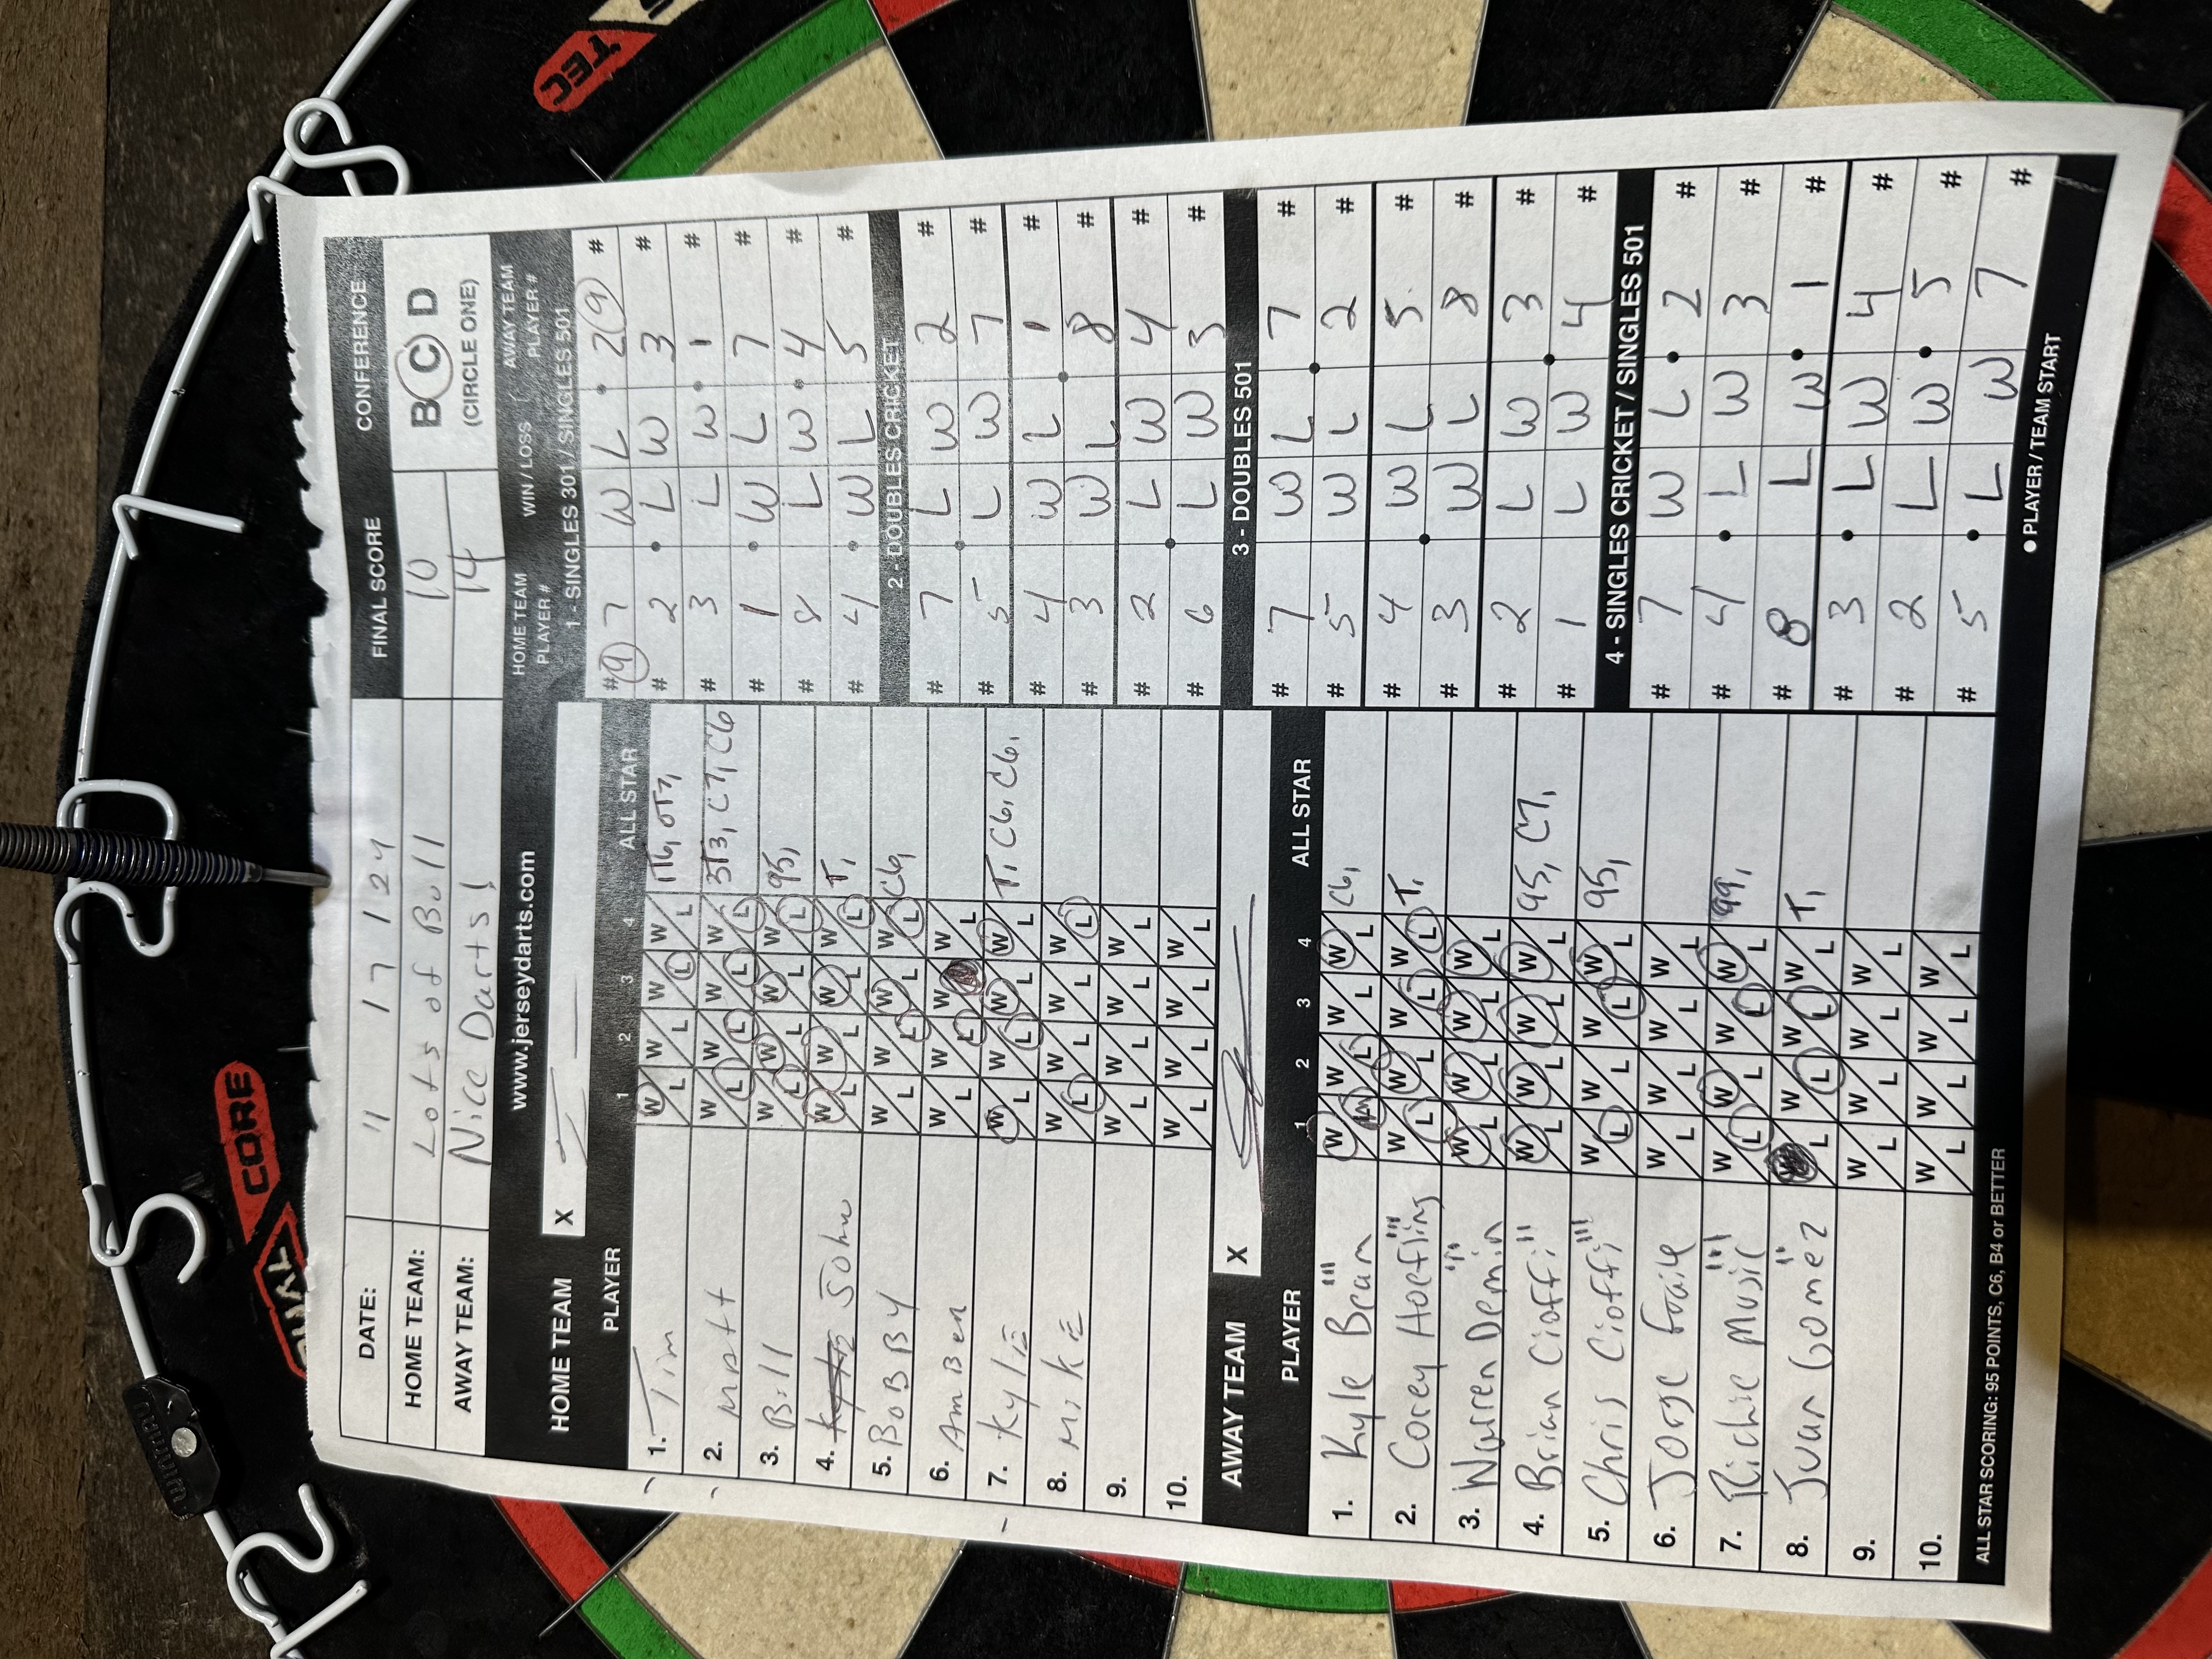 DATE: 11 / 7 / 24
FINAL SCORE
CONFERENCE
HOME TEAM: Lots of Bull 10
AWAY TEAM: Nice Darts! 14
B C D
(CIRCLE ONE)
www.jerseydarts.com
HOME TEAM X
PLAYER 1 2 3 4 ALL STAR
1. Tim W L W L W L W L
2. Matt W L W L W L W L 3T3, C7, C6
3. Bill W L W L W L W L 95,
4. John W L W L W L W L T,
5. BOBBY W L W L W L W L C6,
6. AmBer W L W L W L W L
7. KyliE W L W L W L W L T, C6, C6,
8. MikE W L W L W L W L
9. W L W L W L W L
10. W L W L W L W L
AWAY TEAM X
PLAYER 1 2 3 4 ALL STAR
1. Kyle Bean W L W L W L W L C6,
2. Corey Hoefling W L W L W L W L T,
3. Warren Demin W L W L W L W L
4. Brian Cioffi W L W L W L W L 95, C7,
5. Chris Cioffi W L W L W L W L 95,
6. Jorge W L W L W L W L
7. Richie Music W L W L W L W L 99,
8. Juan Gomez W L W L W L W L T,
9. W L W L W L W L
10. W L W L W L W L
ALL STAR SCORING: 95 POINTS, C6, B4 or BETTER
HOME TEAM PLAYER #
WIN / LOSS
AWAY TEAM PLAYER #
1 - SINGLES 301 / SINGLES 501
# 9 7 W L 2 9 #
# 2 L W 3 #
# 3 L W 1 #
# 1 W L 7 #
# 8 L W 4 #
# 4 W L 5 #
2 - DOUBLES CRICKET
# 7 L W 2 #
# 5 L W 7 #
# 4 W L 1 #
# 3 W L 8 #
# 2 L W 4 #
# 6 L W 3 #
3 - DOUBLES 501
# 7 W L 7 #
# 5 W L 2 #
# 4 W L 5 #
# 3 W L 8 #
# 2 L W 3 #
# 1 L W 4 #
4 - SINGLES CRICKET / SINGLES 501
# 7 W L 2 #
# 4 L W 3 #
# 8 L W 1 #
# 3 L W 4 #
# 2 L W 5 #
# 5 L W 7 #
● PLAYER / TEAM START
CORE
TEC